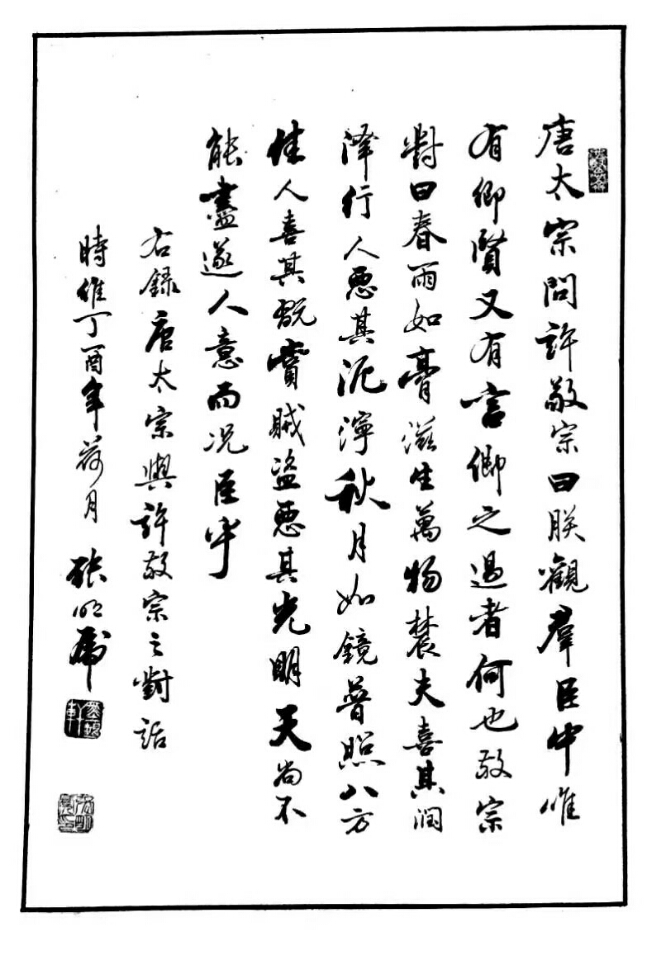 唐太宗問許敬宗曰朕觀羣臣中唯
有卿賢又有言卿之過者何也敬宗
對曰春雨如膏滋生萬物農夫喜其潤
澤行人惡其泥濘秋月如鏡普照八方
佳人喜其翫賞賊盜惡其光明天尚不
能盡遂人意而況臣乎
右錄唐太宗與許敬宗之對話
時維丁酉年荷月 張明